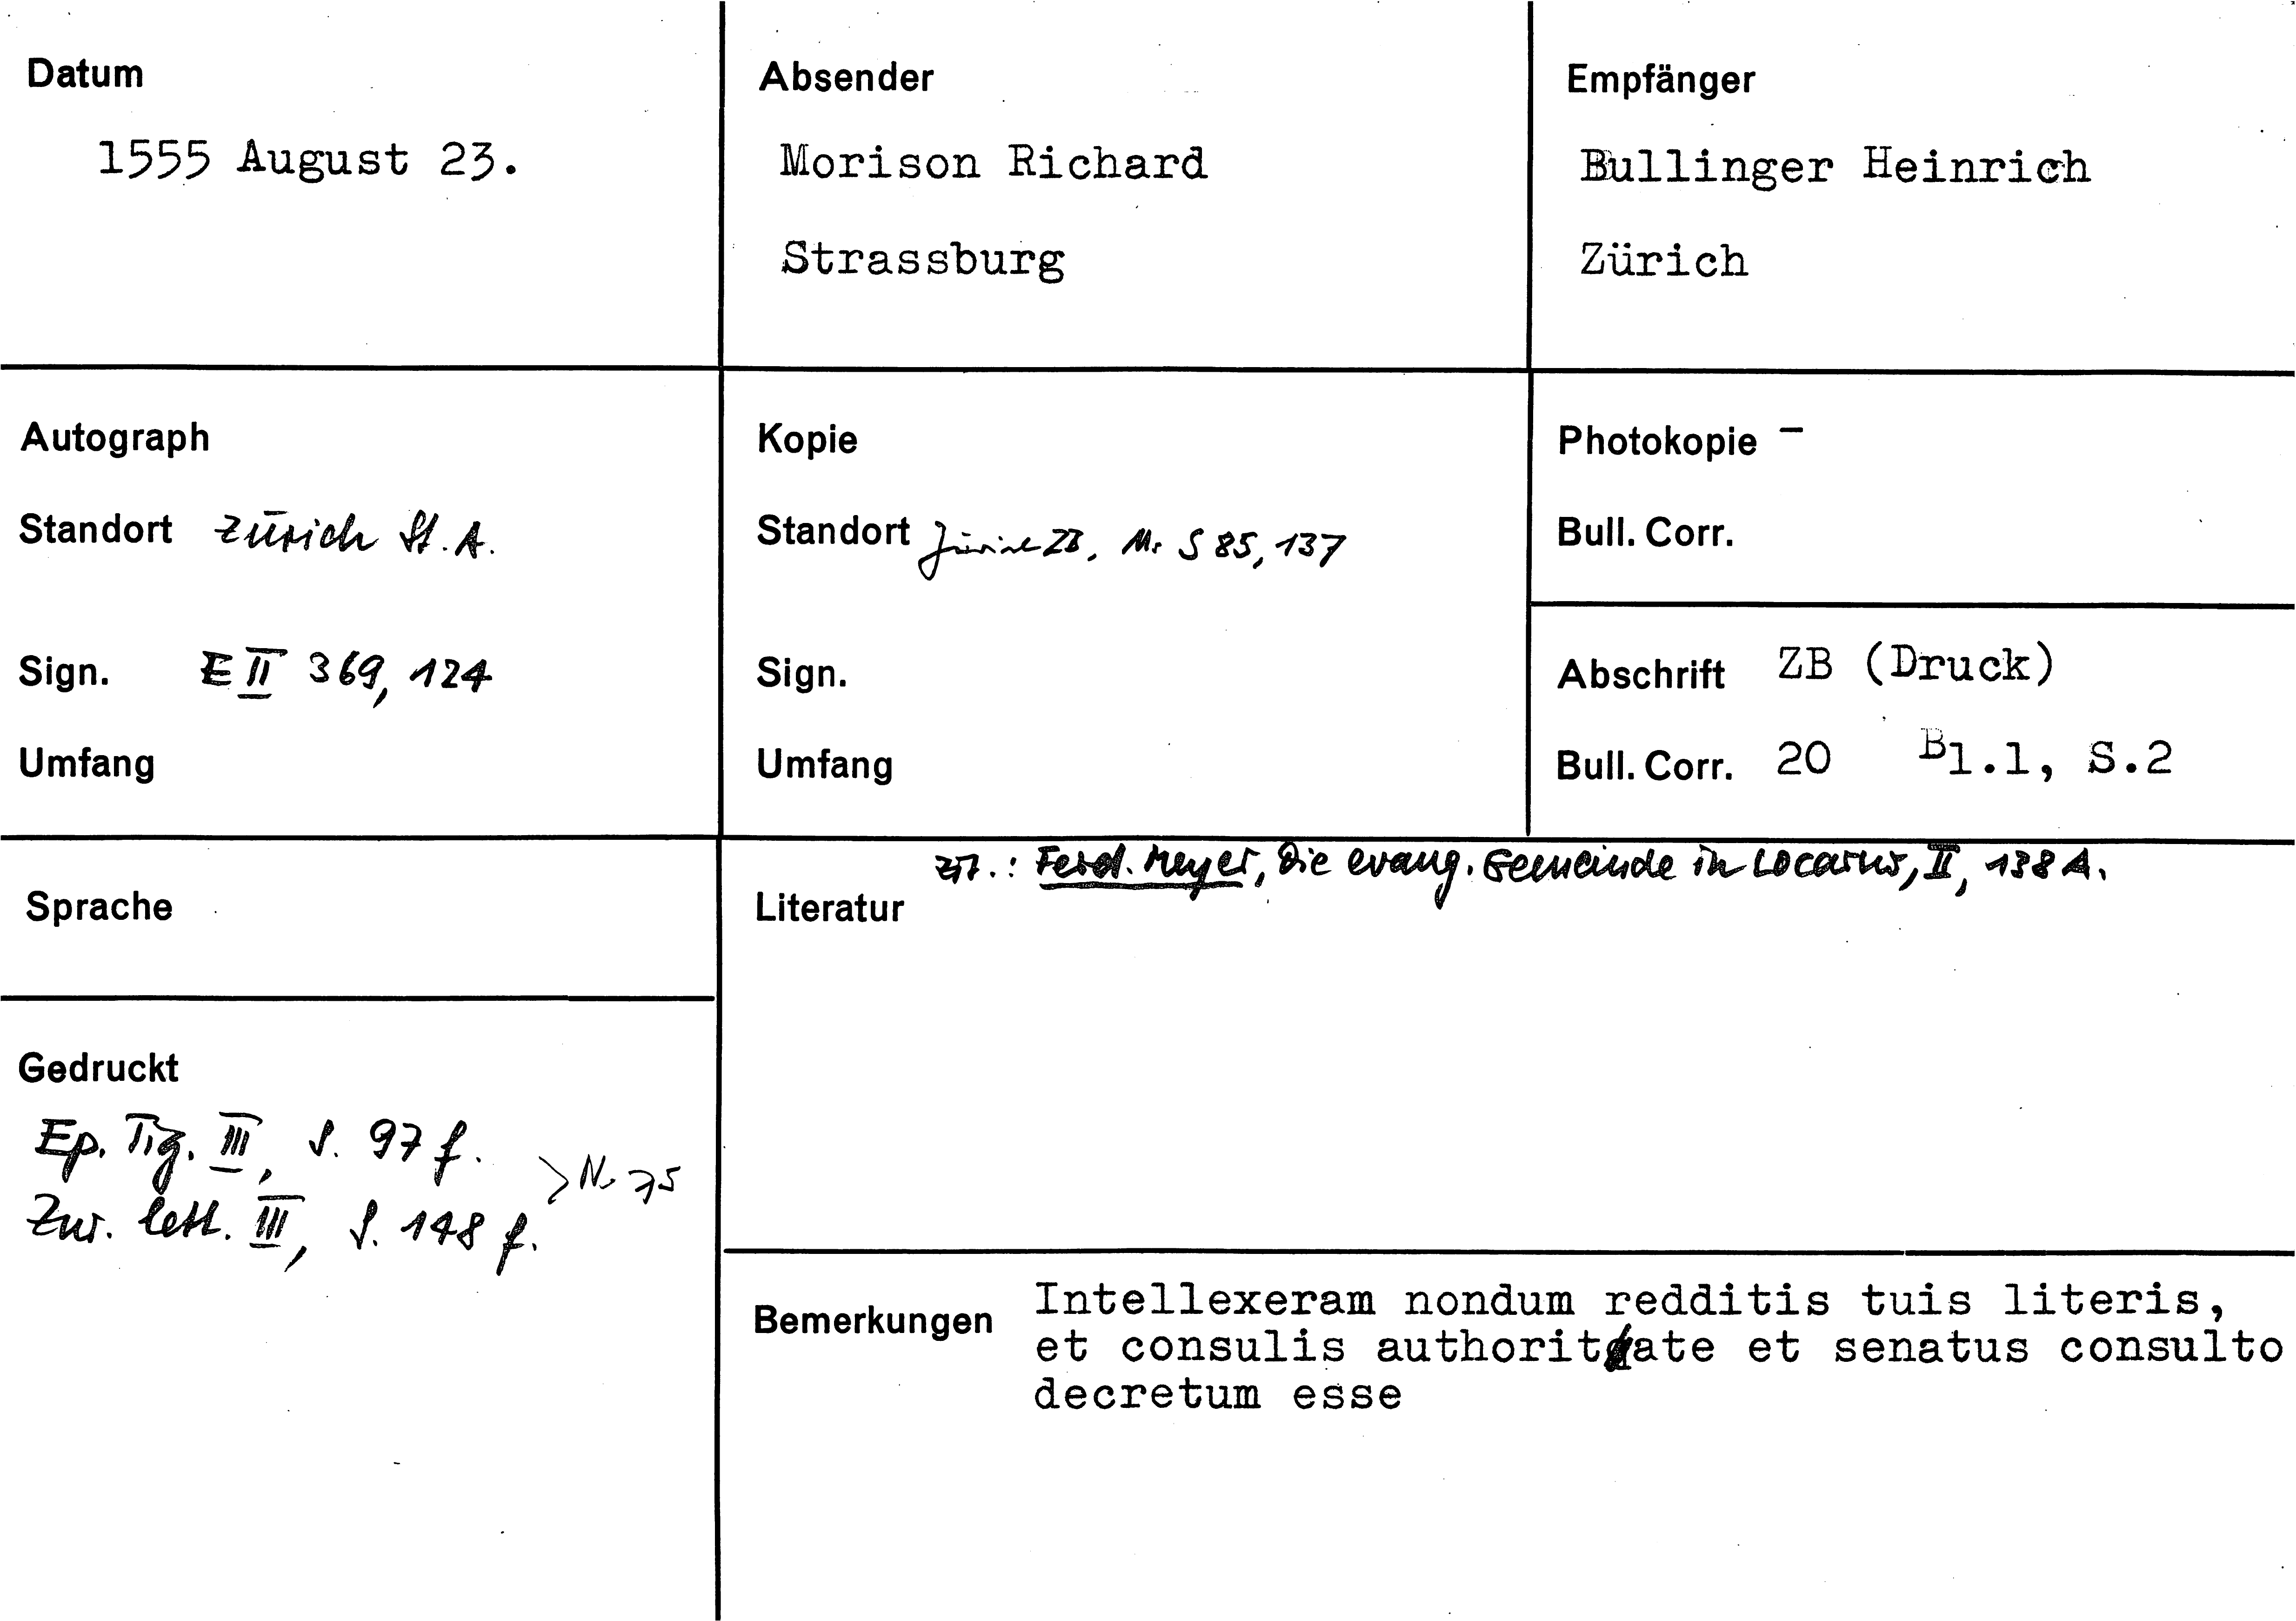 Datum
1555 August 23.
Absender
Morison Richard
Strassburg
Empfänger
Bullinger Heinrich
Zürich
Autograph
Standort Zürich St. A.
Sign. E II 369, 124
Umfang
Kopie
Standort Zürich ZB, Ms S 85, 137
Sign.
Umfang
Photokopie –
Bull. Corr.
Abschrift ZB (Druck)
Bull. Corr. 20 Bl.1, S.2
Sprache
Gedruckt
Ep. Tig. III, S. 97 f.
Zur. lett. III, S. 148 f.
> Nr. 75
zit.: Ferd. Meyer, Die evang. Gemeinde in Locarno, II, 138 A.
Literatur
Bemerkungen Intellexeram nondum redditis tuis literis,
et consulis authoritate et senatus consulto
decretum esse